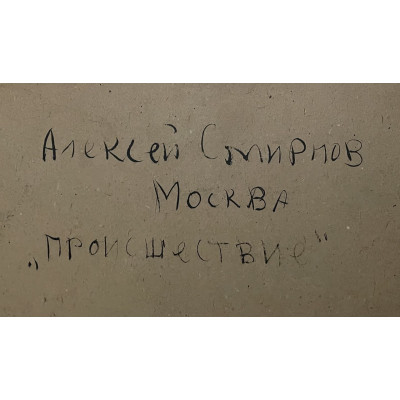 Алексей Смирнов
Москва
„Происшествие"